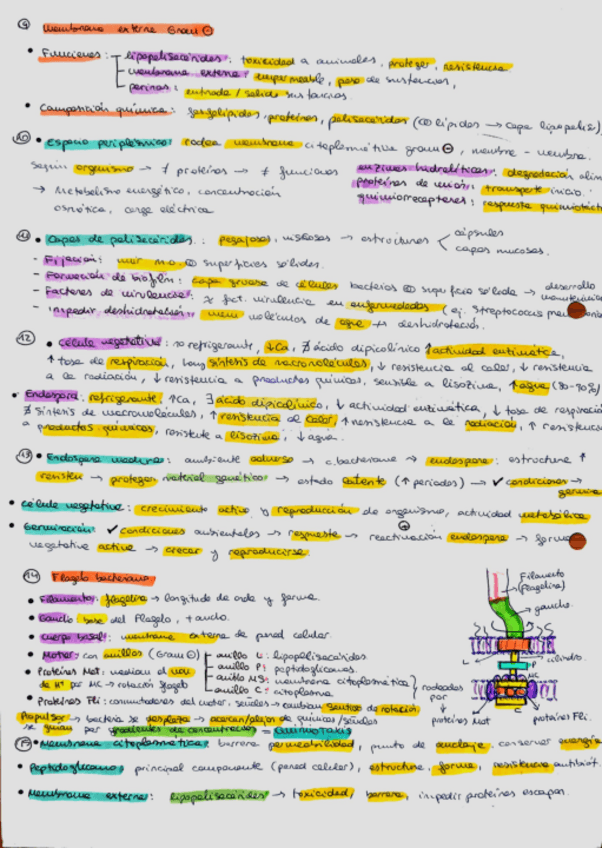 9 Membrana externa Gram ⊖
• Funciones: lipopolisacáridos: toxicidad a animales, proteger, resistencia
membrana externa: impermeable, paso de sustancias,
porinas: entrada/salida sustancias.
• Composición química: fosfolípidos, proteínas, polisacáridos (lípidos → capa lipopolis
10 • Espacio periplásmico rodea membrana citoplasmática gram ⊖, membr - membr.
según organismo → ≠ proteínas → ≠ funciones
enzimas hidrolíticas: degradación alim
→ Metabolismo energético, concentración
proteínas de unión: transporte inicio.
osmótica, carga eléctrica
quimiorreceptores: respuesta quimiotáct
11 • Capas de polisacáridos: pegajosas, viscosas → estructuras
cápsulas
capas mucosas.
- Fijación: unir m.o. superficies sólidas.
- Formación de biofilm: capa gruesa de células bacterias superficie sólida → desarrollo
- Factores de virulencia: fact. virulencia en enfermedades (ej. Streptococcus
- Impedir deshidratación: moléculos de agua deshidratación.
12 • Célula vegetativa: no refrigerante, ↓Ca, ∄ ácido dipicolínico ↑ actividad enzimática,
↑ tasa de respiración, hay síntesis de macromoléculas, ↓ resistencia al calor, ↓ resistencia
a la radiación, ↓ resistencia a productos químicos, sensible a lisozima, ↑ agua (80-90%)
• Endospora: refrigerante, ↑Ca, ∃ ácido dipicolínico, ↓ actividad enzimática, ↓ tasa de respiració
∄ síntesis de macromoléculas, ↑ resistencia al calor, ↑ resistencia a la radiación, ↑ resistencia
a productos químicos, resistente a lisozima, ↓ agua.
13 • Endospora madura: ambiente adverso → c. bacteriana → endospora: estructura ↑
resisten → proteger material genético → estado latente (↑ periodos) → ✓ condiciones →
germina
• Célula vegetativa: crecimiento activo y reproducción de organismo, actividad metabólica
• Germinación: ✓ condiciones ambientales → respuesta → reactivación endospora → forma
vegetativa activa → crecer y reproducirse.
14 Flagelo bacteriano
• Filamento: flagelina → longitud de onda y forma.
• Gancho base del Flagelo, + ancho.
• Cuerpo basal: membrana externa de pared celular.
• Motor: con anillos (Gram ⊖)
anillo L: lipopolisacáridos.
anillo P: peptidoglicano.
anillo MS: membrana citoplasmática
anillo C: citoplasma
• Proteínas Mot: median el mov
de H⁺ por MC → rotación flagelo
rodeados
por
• Proteínas Fli: conmutadores del motor, señales → cambian sentido de rotación
Filamento
(flagelina)
gancho.
cilindro.
L
P
C
proteínas Mot
proteínas Fli.
Propulsor → bacteria se desplaza → acercan/alejan de químicos/señales
se guían por gradientes de concentración = Quimiotaxis
• Membrana citoplasmática: barrera permeabilidad, punto de anclaje, conservar energía
• Peptidoglicano: principal componente (pared celular), estructura, forma, resistencia antibiót.
• Membrana externa: lipopolisacáridos → toxicidad, barrera, impedir proteínas escapar.